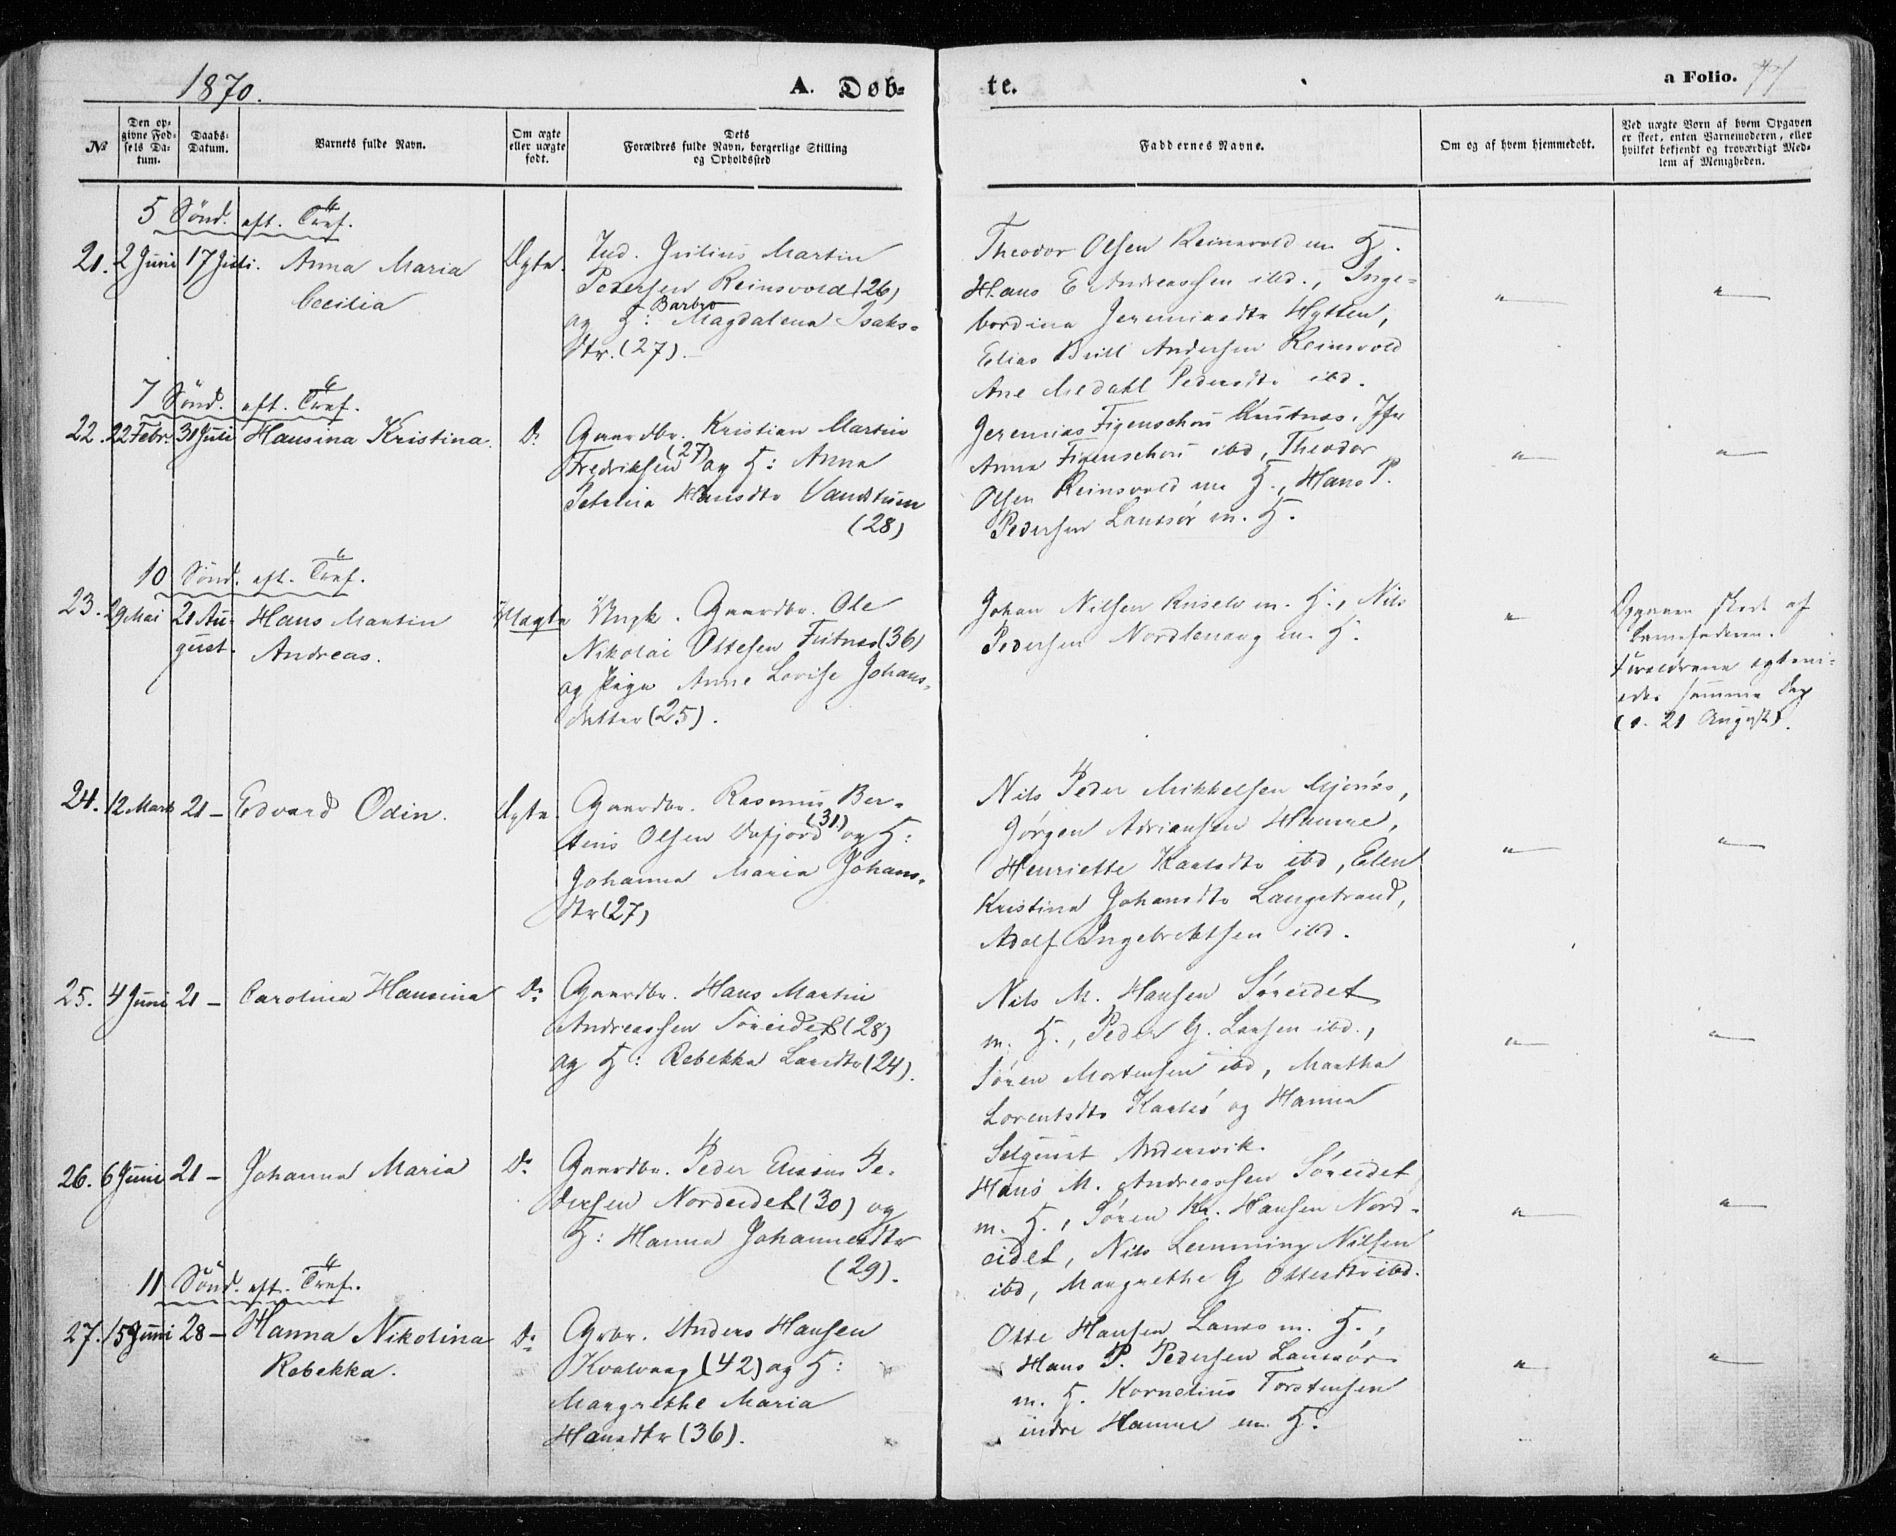 1870.
A. Døb-
te.
a Folio. 77
No
Den op-
givne Fød-
sels Da-
tum.
Daabs-
Datum.
Barnets fulde Navn.
Om ægte
eller uægte
født.
Dets
Forældres fulde Navn, borgerlige Stilling
og Opholdssted
Faddernes Navne.
Om og af hvem hjemmedøbt.
Ved uægte Børn af hvem Opgaven
er skeet, enten Barnemoderen, eller
hvilket bekjendt og troværdigt Med-
lem af Menigheden.
5 Sønd. eft. Tref.
21. 2 Juni 17 Juli. Anna Maria
Cecilia
Ægte.
Ind. Julius Martin
Pedersen Reinsvold (26)
og H: Barbro Magdalena Isaks-
dtr. (27).
Theodor Olsen Reinsvold m H.
Hans E Andreassen ibd., Inge-
bordina Jeremiasdtr Hytten,
Elias Andersen Reinsvold
Ane Pedersdtr ibd.
"
"
7 Sønd. eft. Tref.
22. 22 Febr. 31 Juli Hansina Kristina.
Do
Gaardbr. Kristian Martin
Fredriksen (27) og H: Anna
Petrina Hansdtr Vandtuen
(28)
Jeremias Figenschou Knutnes, Jfr
Anna Figenschou ibd, Theodor
Olsen Reinsvold m H., Hans P.
Pedersen Lanesør m. H.
"
"
10 Sønd. eft. Tref.
23. 29 Mai 21 Au-
gust.
Hans Martin
Andreas.
Uægte
Ungk. Gaardbr. Ole
Nikolai Ottesen Futnes (36)
og Pige Anne Lovise Johans-
datter (25).
Johan Nilsen m. H., Nils
Pedersen Nordlenang m. H.
"
Opgaven skeet af
Barnefaderen.
Forældrene egtevi-
edes samme Dag
(d. 21 August).
24. 12 Marts 21 – Edvard Odin.
Ægte.
Gaardbr. Rasmus Ber-
tins Olsen Dafjord (31) og H:
Johanna Maria Johans-
dtr (27)
Nils Peder Mikkelsen Mjønes,
Jørgen Adriansen Hamre,
Henriette Karlsdtr ibd, Elen
Kristina Johansdtr Langstrand,
Adolf Ingebrektsen ibd.
"
"
25. 4 Juni 21 – Carolina Hansina
Do
Gaardbr. Hans Martin
Andreassen Søreidet (28)
og H: Rebekka Larsdtr (24).
Nils M. Hansen Søreidet
m. H., Peder G. Larsen ibd.,
Søren Mortensen ibd, Martha
Lorentsdtr Karlsø og Hanna
Selquist Andersvik.
"
"
26. 6 Juni 21 – Johanna Maria
Do
Gaardbr. Peder Pe-
dersen Nordeidet (30) og
H: Hanna Johannesdtr
(29).
Hans M. Andreassen Søreidet
m. H., Søren Kr. Hansen Nord-
eidet, Nils Lemming Nilsen
ibd, Margrethe G Ottesdtr ibd.
"
"
11 Sønd. eft. Tref.
27. 15 Juni 28 – Hanna Nikolina
Rebekka.
Do
Grbr. Anders Hansen
Kvalvaag (42) og H:
Margrethe Maria
Hansdtr (36).
Otte Hansen Lanes m. H.,
Hans P. Pedersen Lanesør
m. H. Kornelius Torstensen
indre Hamre m. H.
"
"